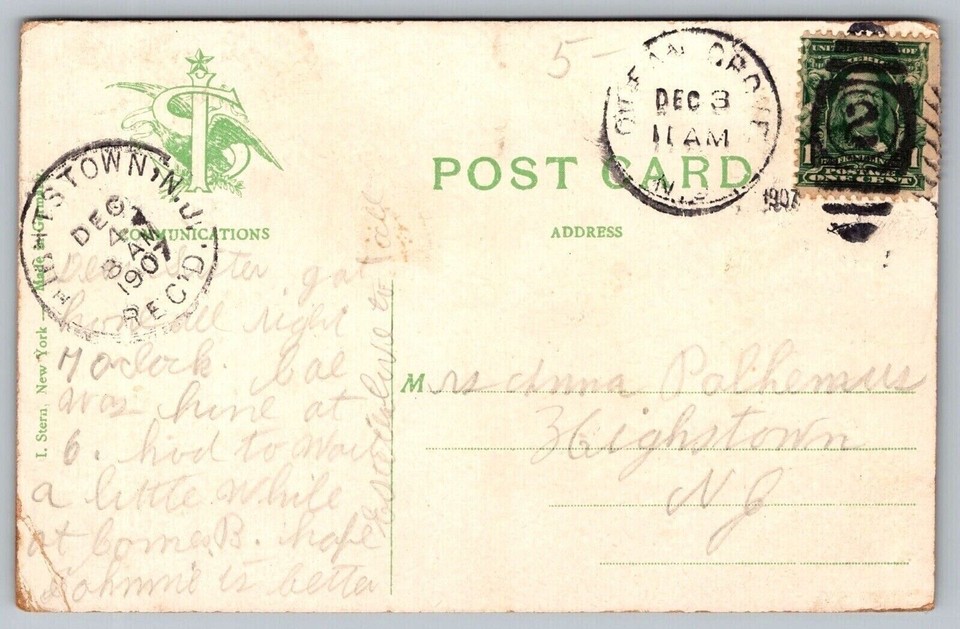 5-
OCEAN GROVE
DEC 3
11 AM
N.J.
1907
UNITED STATES OF
2
1
FRANKLIN
POSTAGE
ONE CENT
POST CARD
HIGHTSTOWN, N.J.
DEC
4
8 AM
1907
REC'D.
COMMUNICATIONS
ADDRESS
I. Stern, New York — Made in
Dear got
home all right
7 Oclock.
was home at
6. had to wait
a little while
at B. hope
Johnnie is better
love to all
Mrs Anna Polhemus
Heighstown
NJ